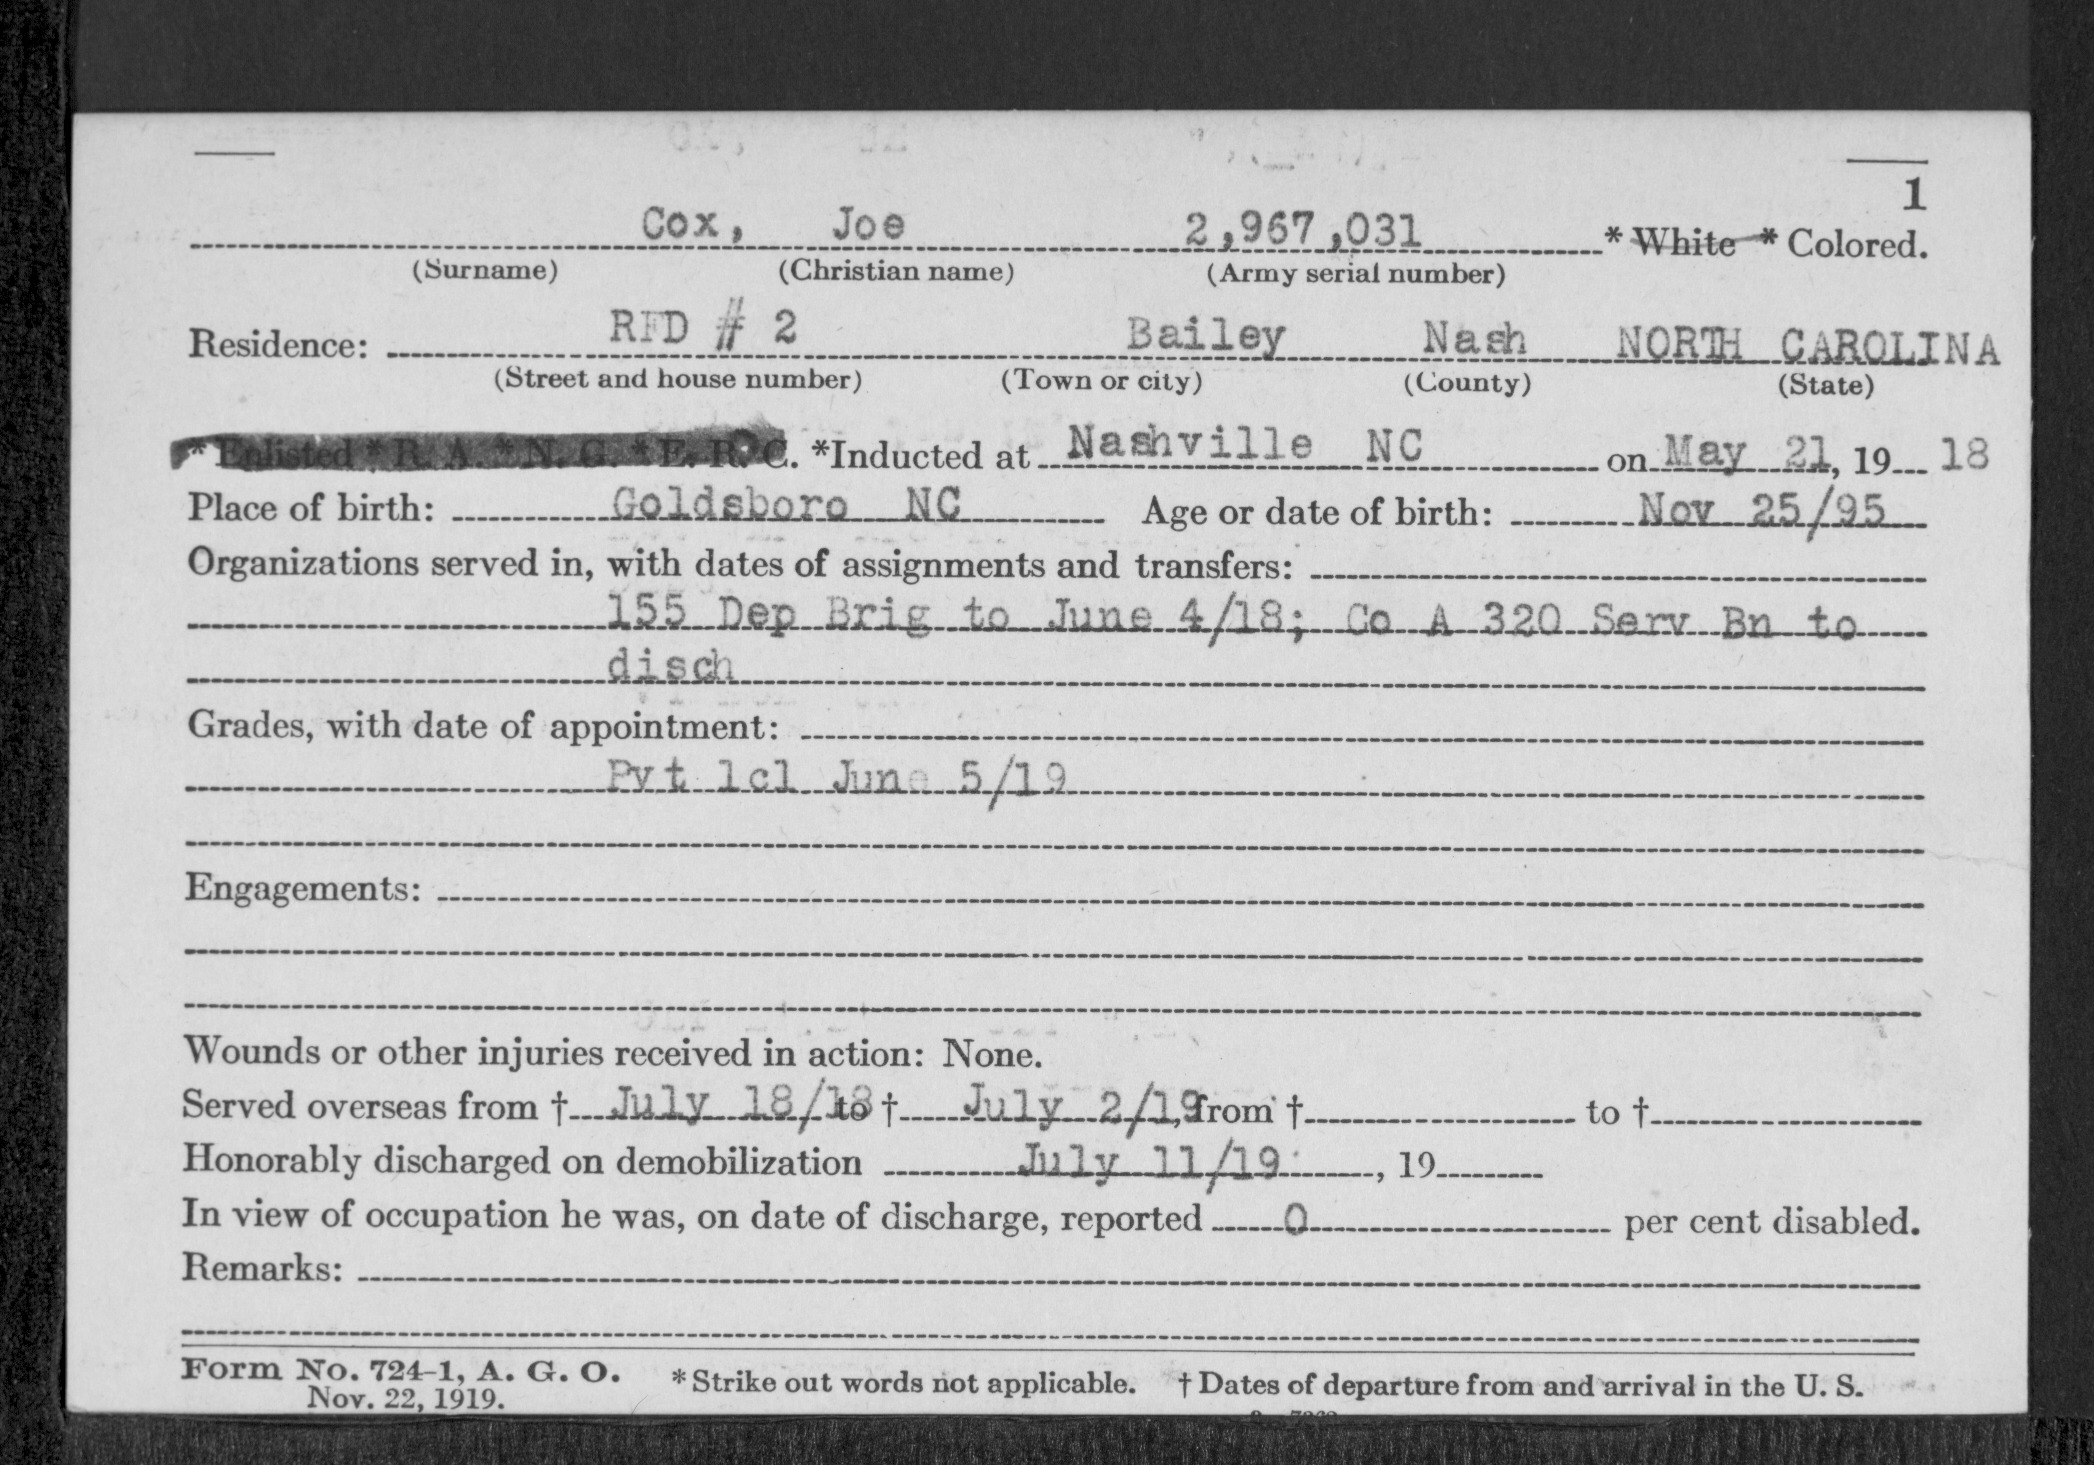 1
Cox, Joe 2,967,031 * White * Colored.
(Surname) (Christian name) (Army serial number)
Residence: RFD # 2 Bailey Nash NORTH CAROLINA
(Street and house number) (Town or city) (County) (State)
* Enlisted * R. A. * N. G. * E. R. C. *Inducted at Nashville NC on May 21, 19 18
Place of birth: Goldsboro NC Age or date of birth: Nov 25/95
Organizations served in, with dates of assignments and transfers:
155 Dep Brig to June 4/18; Co A 320 Serv Bn to
disch
Grades, with date of appointment:
Pvt 1cl June 5/19
Engagements:
Wounds or other injuries received in action: None.
Served overseas from † July 18/18 to † July 2/19, from † to †
Honorably discharged on demobilization July 11/19, 19
In view of occupation he was, on date of discharge, reported 0 per cent disabled.
Remarks:
Form No. 724-1, A. G. O. * Strike out words not applicable. † Dates of departure from and arrival in the U. S.
Nov. 22, 1919.